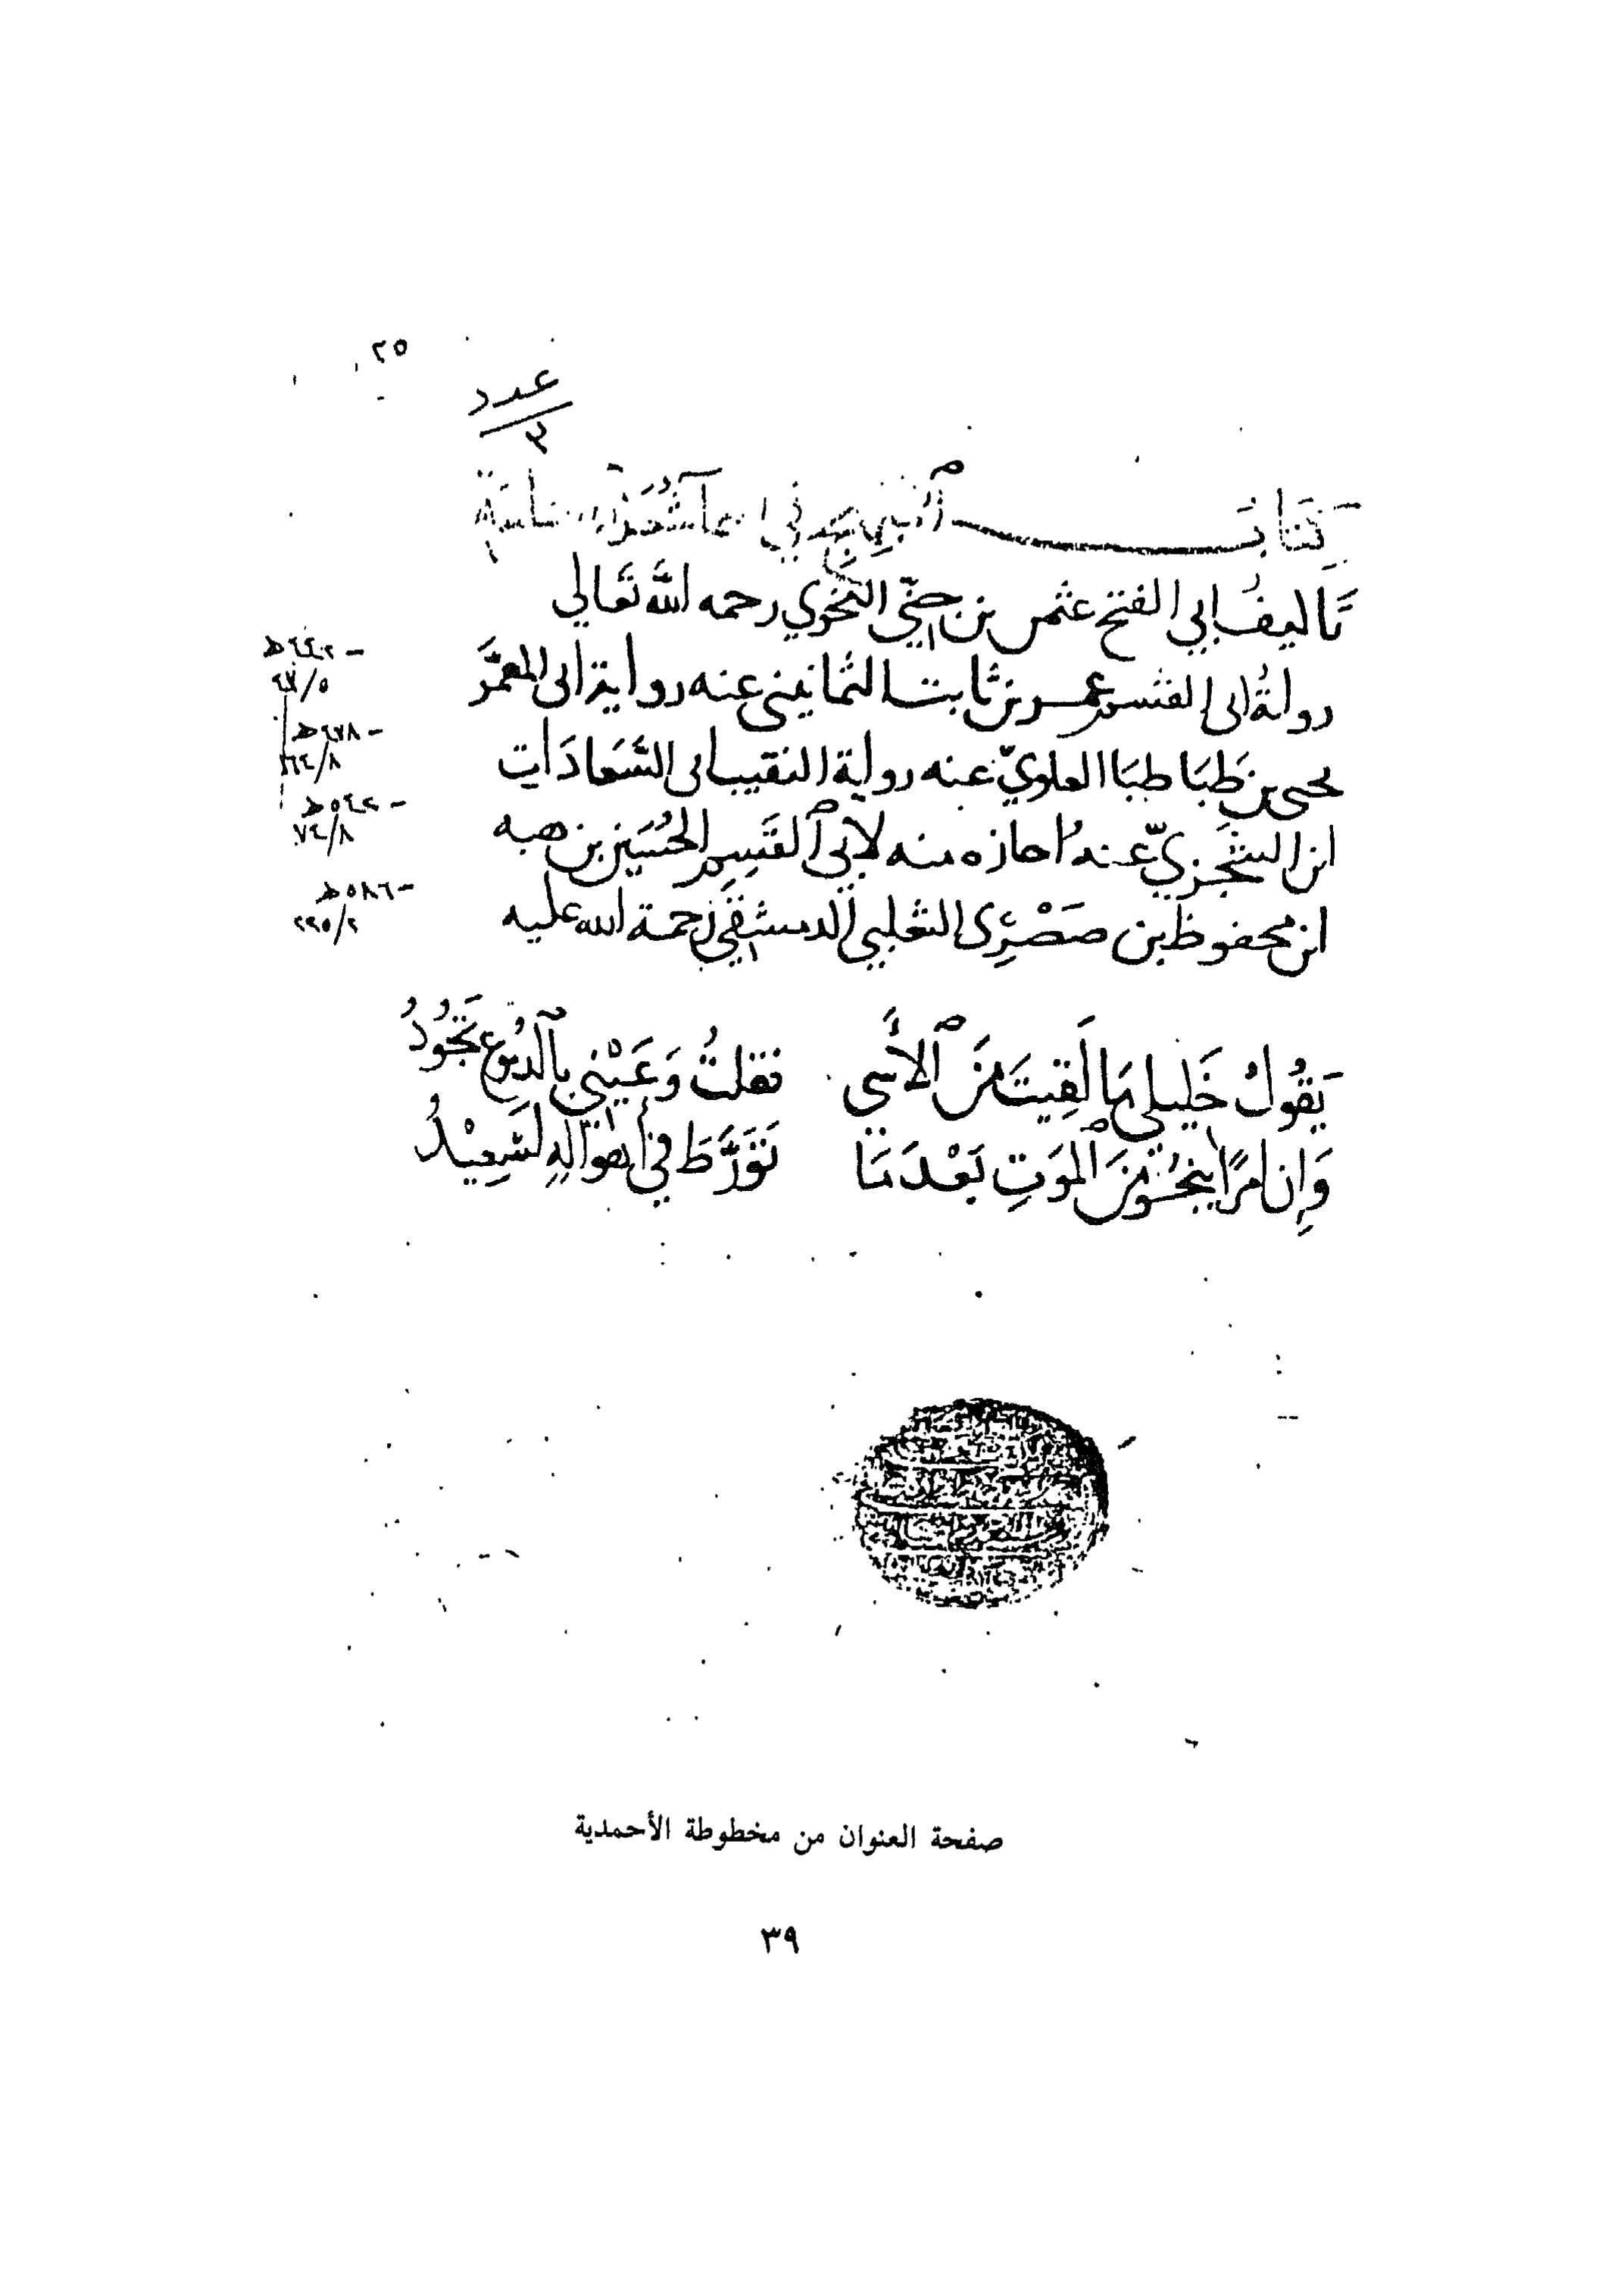 ٢٥
عدد
٣
كتاب المبهج في أسماء شعراء الحماسة
تاليف ابي الفتح عثمن بن جني النحوي رحمه الله تعالي
رواية ابى القسم عمر بن ثابت الثمانينى عنه رواية ابى المعمر
يحيى بن طباطبا العلوي عنه رواية النقيب ابى السعادات
ابن الشجري عنه اجازه منه لابي القسم الحسين بن هبه
ابن محفوظ بن صصرى الثعلبي الدمشقي رحمة الله عليه
- ٤٤٢ه
- ٤٧٨ه
- ٥٤٢ه
٧٤/٨
- ٥٨٦ه
٢٢٥/٢
يَقُولُ خَلِيلي مَا لَقِيتَ مِنَ الأسَي فقلتُ وَعَيْني بِالدموعِ تجُودُ
وَإِن امرًا ينجُو مِنَ الموَتِ بَعْدَمَا تَوَرَّطَ في أهوالِهِ لسَعِيْدُ
صفحة العنوان من مخطوطة الأحمدية
٣٩